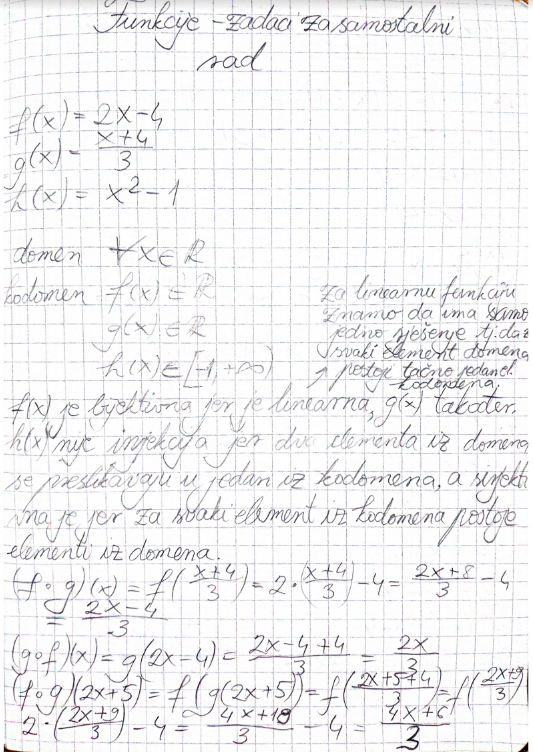 Funkcije - zadaci za samostalni
rad
f(x) = 2x-4
g(x) = \frac{x+4}{3}
h(x) = x² - 1
domen ∀x∈ℝ
kodomen f(x) ∈ ℝ
g(x) ∈ ℝ
h(x) ∈ [-1, +∞)
Za linearnu funkciju
znamo da ima samo
jedno rješenje tj. da za
svaki element domena
postoji tačno jedan el.
kodomena
f(x) je bijektivna jer je linearna, g(x) također.
h(x) nije injekcija jer dva elementa iz domena
se preslikavaju u jedan iz kodomena, a sirjekti
vna je jer za svaki element iz kodomena postoje
elementi iz domena.
(f∘g)(x) = f(\frac{x+4}{3}) = 2·(\frac{x+4}{3}) - 4 = \frac{2x+8}{3} - 4
= \frac{2x-4}{3}
(g∘f)(x) = g(2x-4) = \frac{2x-4+4}{3} = \frac{2x}{3}
(f∘g)(2x+5) = f(g(2x+5)) = f(\frac{2x+5+4}{3}) = f(\frac{2x+9}{3})
2·(\frac{2x+9}{3}) - 4 = \frac{4x+18}{3} - 4 = \frac{4x+6}{3}